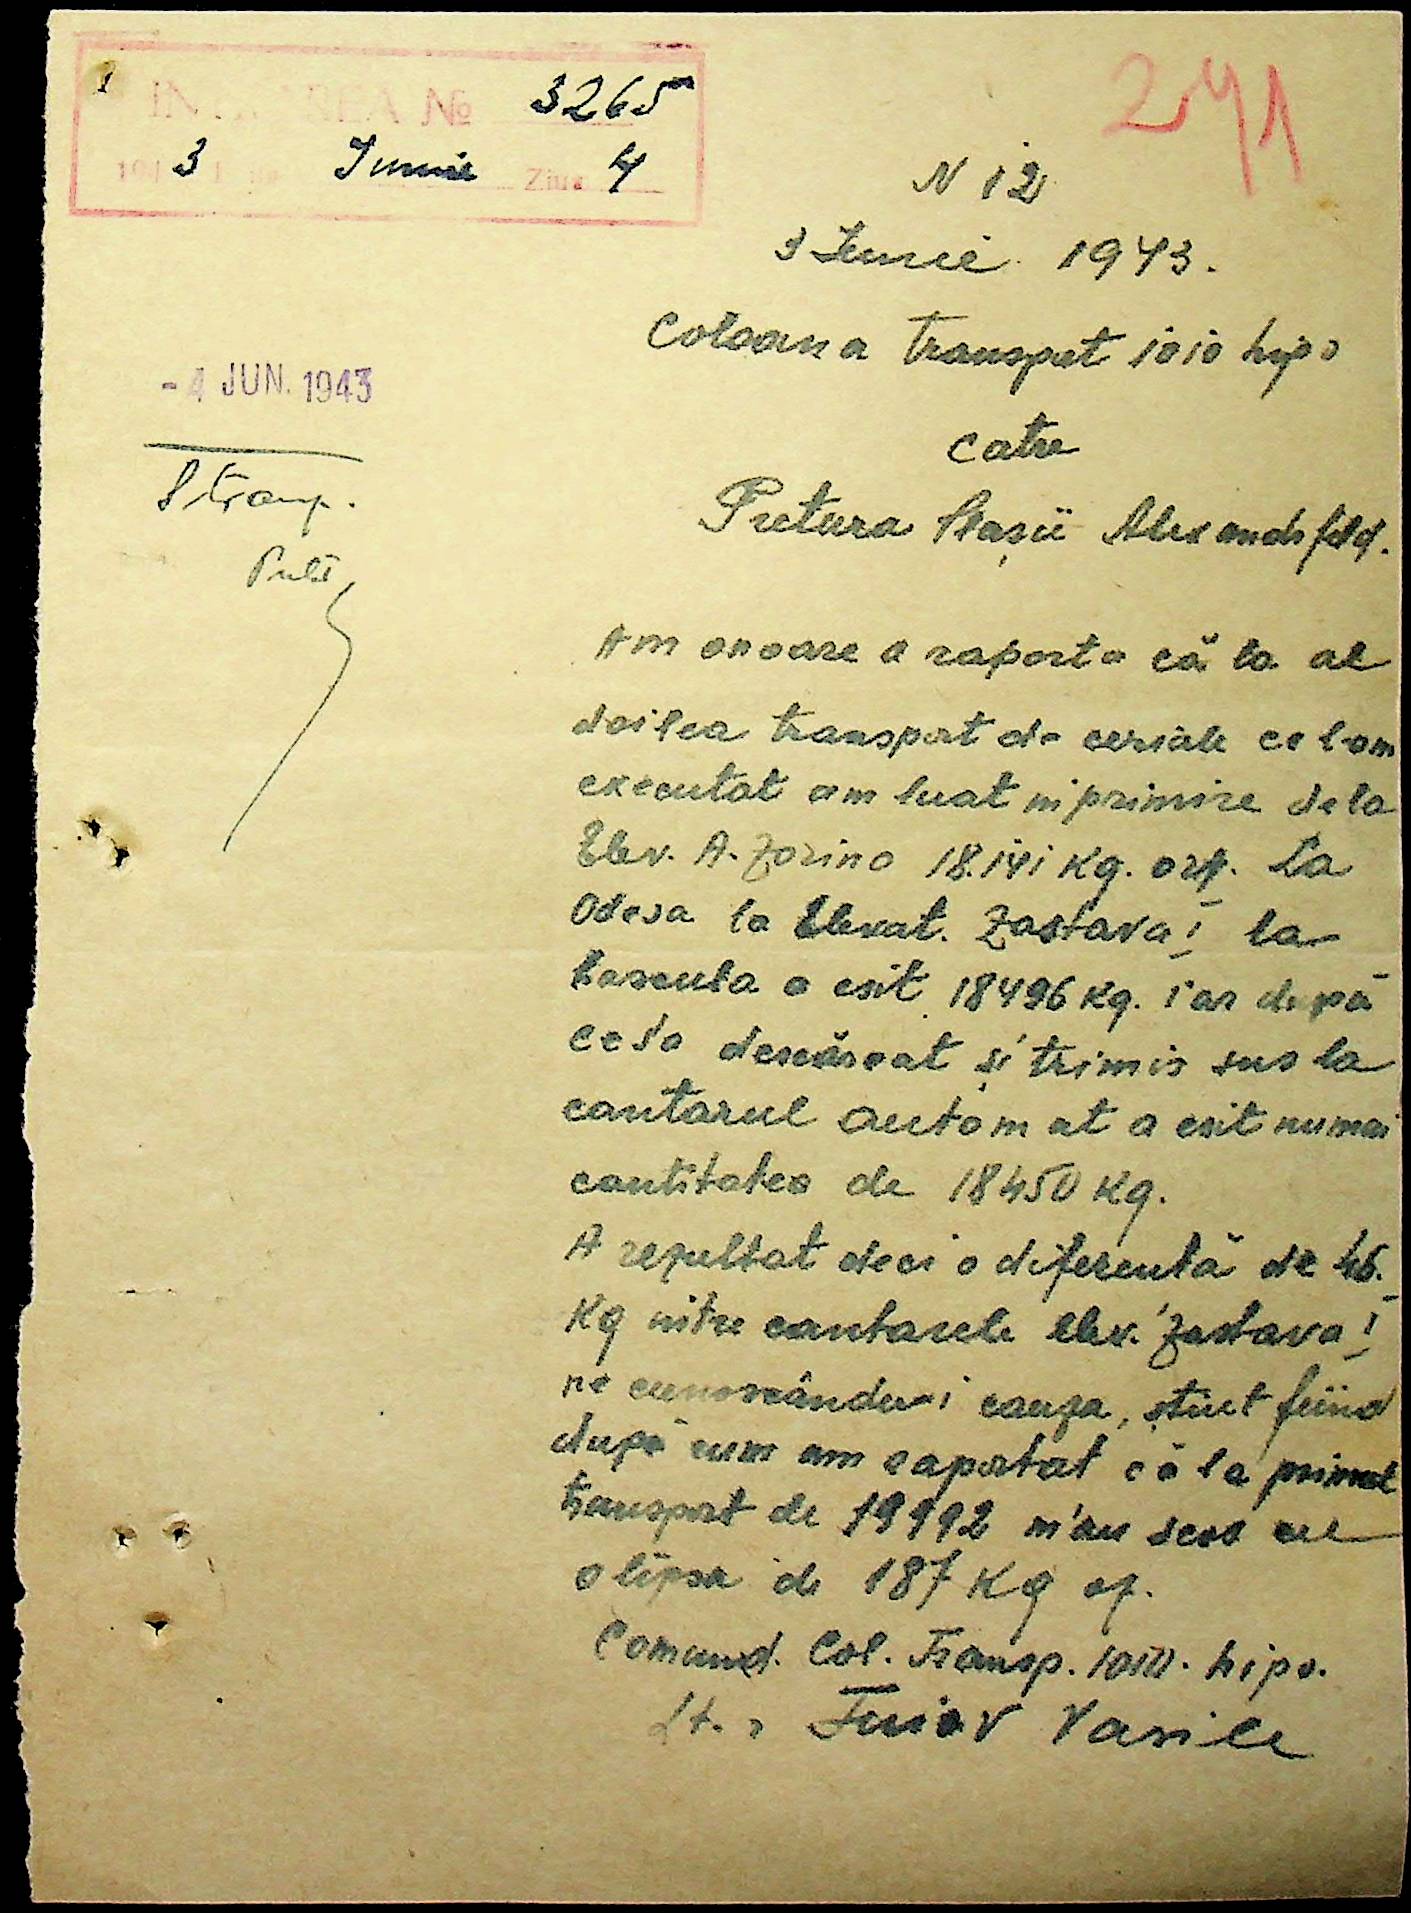 INTRAREA № 3265
194 3 Iunie Ziua 4
241
N 12
3 Iunie 1943.
Coloana Transport 1010 hipo
- 4 JUN. 1943
Catre
Transp.
Pretura Plasii Alexandrfeld.
Am onoare a raporta că la al
doilea transport de ceriale ce l-am
executat am luat in primire de la
Elev. A. Zorino 18.141 Kg. orz. La
Odesa la Elevat. Zastava I la
bascula a esit 18496 Kg. iar după
ce s'a descărcat și trimis sus la
cantarul automat a esit numai
cantitatea de 18450 Kg.
A rezultat deci o diferentă de 46.
Kg intre cantarele elev. Zastava I
ne cunoscându-i cauza, știut fiind
după cum am raportat că la primul
transport de 19992 m'au scos cu
o lipsa de 187 Kg
Comand. Col. Transp. 1010. hipo.
Lt. Vasile